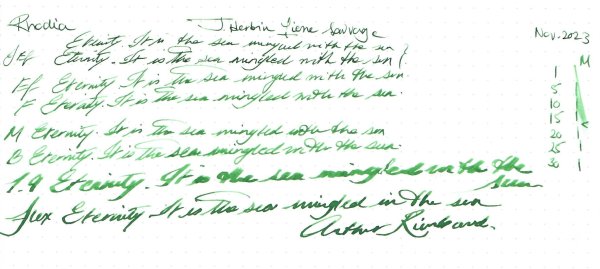 Rhodia J. Herbin Lierre Sauvage Nov. 2023
Eternity. It is the sea mingled with the sun
EF Eternity. It is the sea mingled with the sun
EF Eternity. It is the sea mingled with the sun.
F Eternity. It is the sea mingled with the sun.
M Eternity. It is the sea mingled with the sun
B Eternity. It is the sea mingled with the sun.
1.9 Eternity. It is the sea mingled with the
sun
flex Eternity It is the sea mingled in the sun
Arthur Rimbaud.
M
1
5
10
15
20
25
30